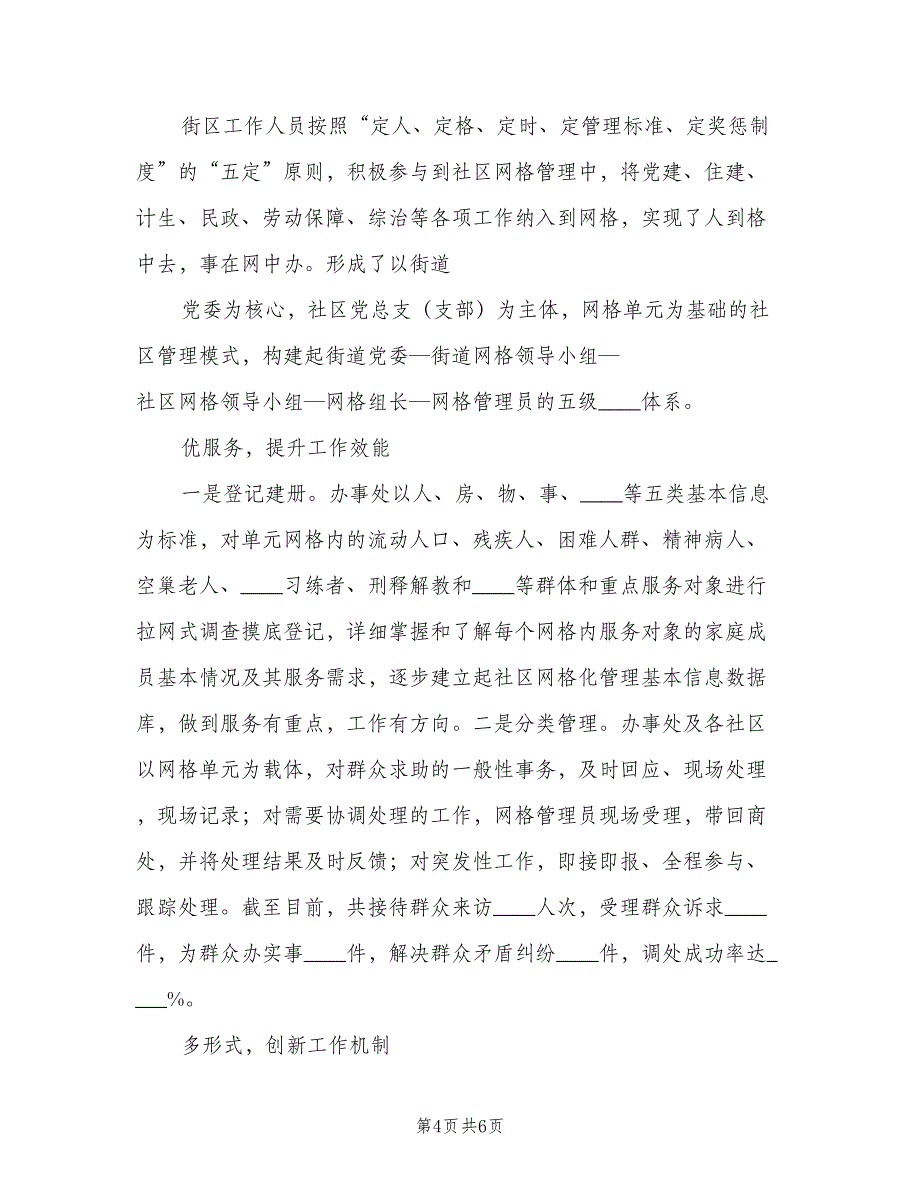 街区工作人员按照“定人、定格、定时、定管理标准、定奖惩制
度”的“五定”原则，积极参与到社区网格管理中，将党建、住建、
计生、民政、劳动保障、综治等各项工作纳入到网格，实现了人到格
中去，事在网中办。形成了以街道
党委为核心，社区党总支（支部）为主体，网格单元为基础的社
区管理模式，构建起街道党委—街道网格领导小组—
社区网格领导小组—网格组长—网格管理员的五级____体系。
优服务，提升工作效能
一是登记建册。办事处以人、房、物、事、____等五类基本信息
为标准，对单元网格内的流动人口、残疾人、困难人群、精神病人、
空巢老人、____习练者、刑释解教和____等群体和重点服务对象进行
拉网式调查摸底登记，详细掌握和了解每个网格内服务对象的家庭成
员基本情况及其服务需求，逐步建立起社区网格化管理基本信息数据
库，做到服务有重点，工作有方向。二是分类管理。办事处及各社区
以网格单元为载体，对群众求助的一般性事务，及时回应、现场处理
，现场记录；对需要协调处理的工作，网格管理员现场受理，带回商
处，并将处理结果及时反馈；对突发性工作，即接即报、全程参与、
跟踪处理。截至目前，共接待群众来访____人次，受理群众诉求____
件，为群众办实事____件，解决群众矛盾纠纷____件，调处成功率达_
___%。
多形式，创新工作机制
第4页 共6页